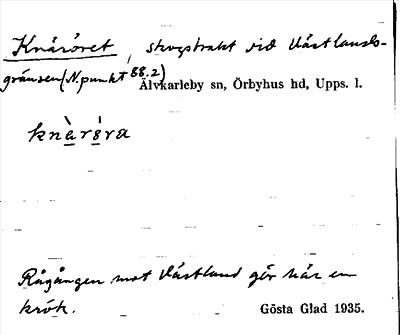 Knäröret, skogstrakt vid Västlands-
gränsen (N. punkt 88.2)
Älvkarleby sn, Örbyhus hd, Upps. l.
knàrɵ́ra
Rågången mot Västland gör här en
krök.
Gösta Glad 1935.